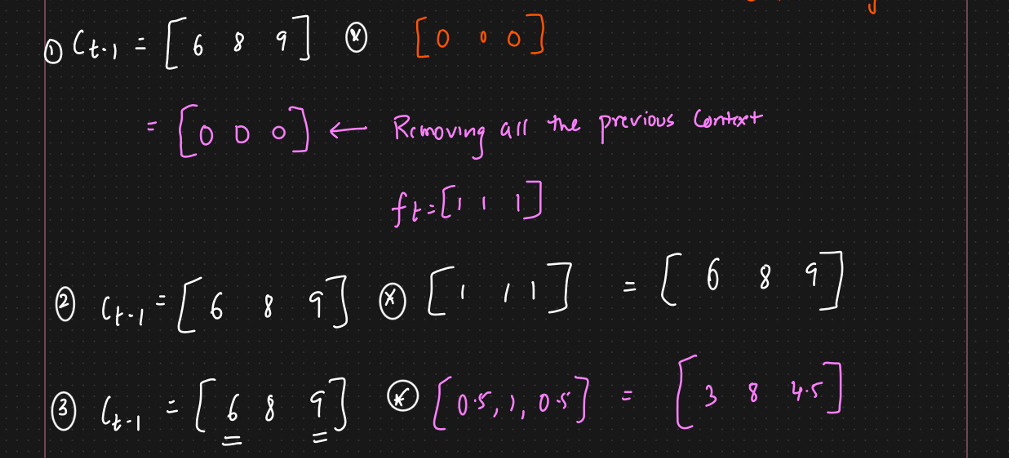 ① Ct-1 = [6 8 9] ⊗ [0 0 0]
= [0 0 0] ← Removing all the previous context
ft = [1 1 1]
② Ct-1 = [6 8 9] ⊗ [1 1 1] = [6 8 9]
③ Ct-1 = [6 8 9] ⊗ [0.5, 1, 0.5] = [3 8 4.5]